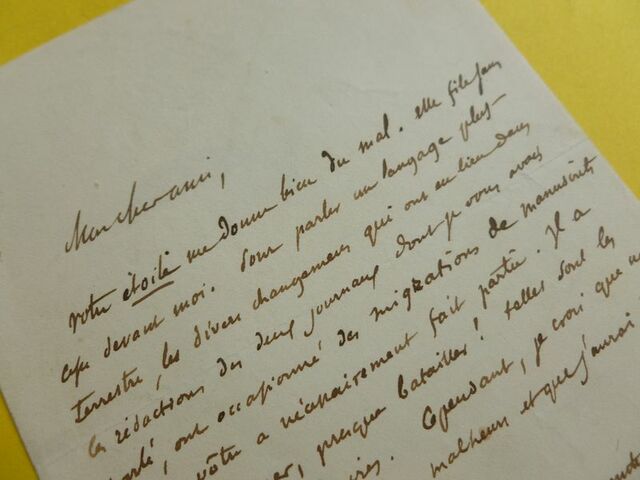 Mon cher ami,
votre étoile me donne bien du mal. Elle file sans
cesse devant moi. Pour parler un langage plus
terrestre, les divers changements qui ont eu lieu dans
les rédactions des deux journaux dont je vous avais
parlé, ont occasionné des migrations de manuscrits
vôtre a nécessairement fait partie. Il a
presque batailler! telles sont les
Cependant, je crois que
malheurs et que j'aurai